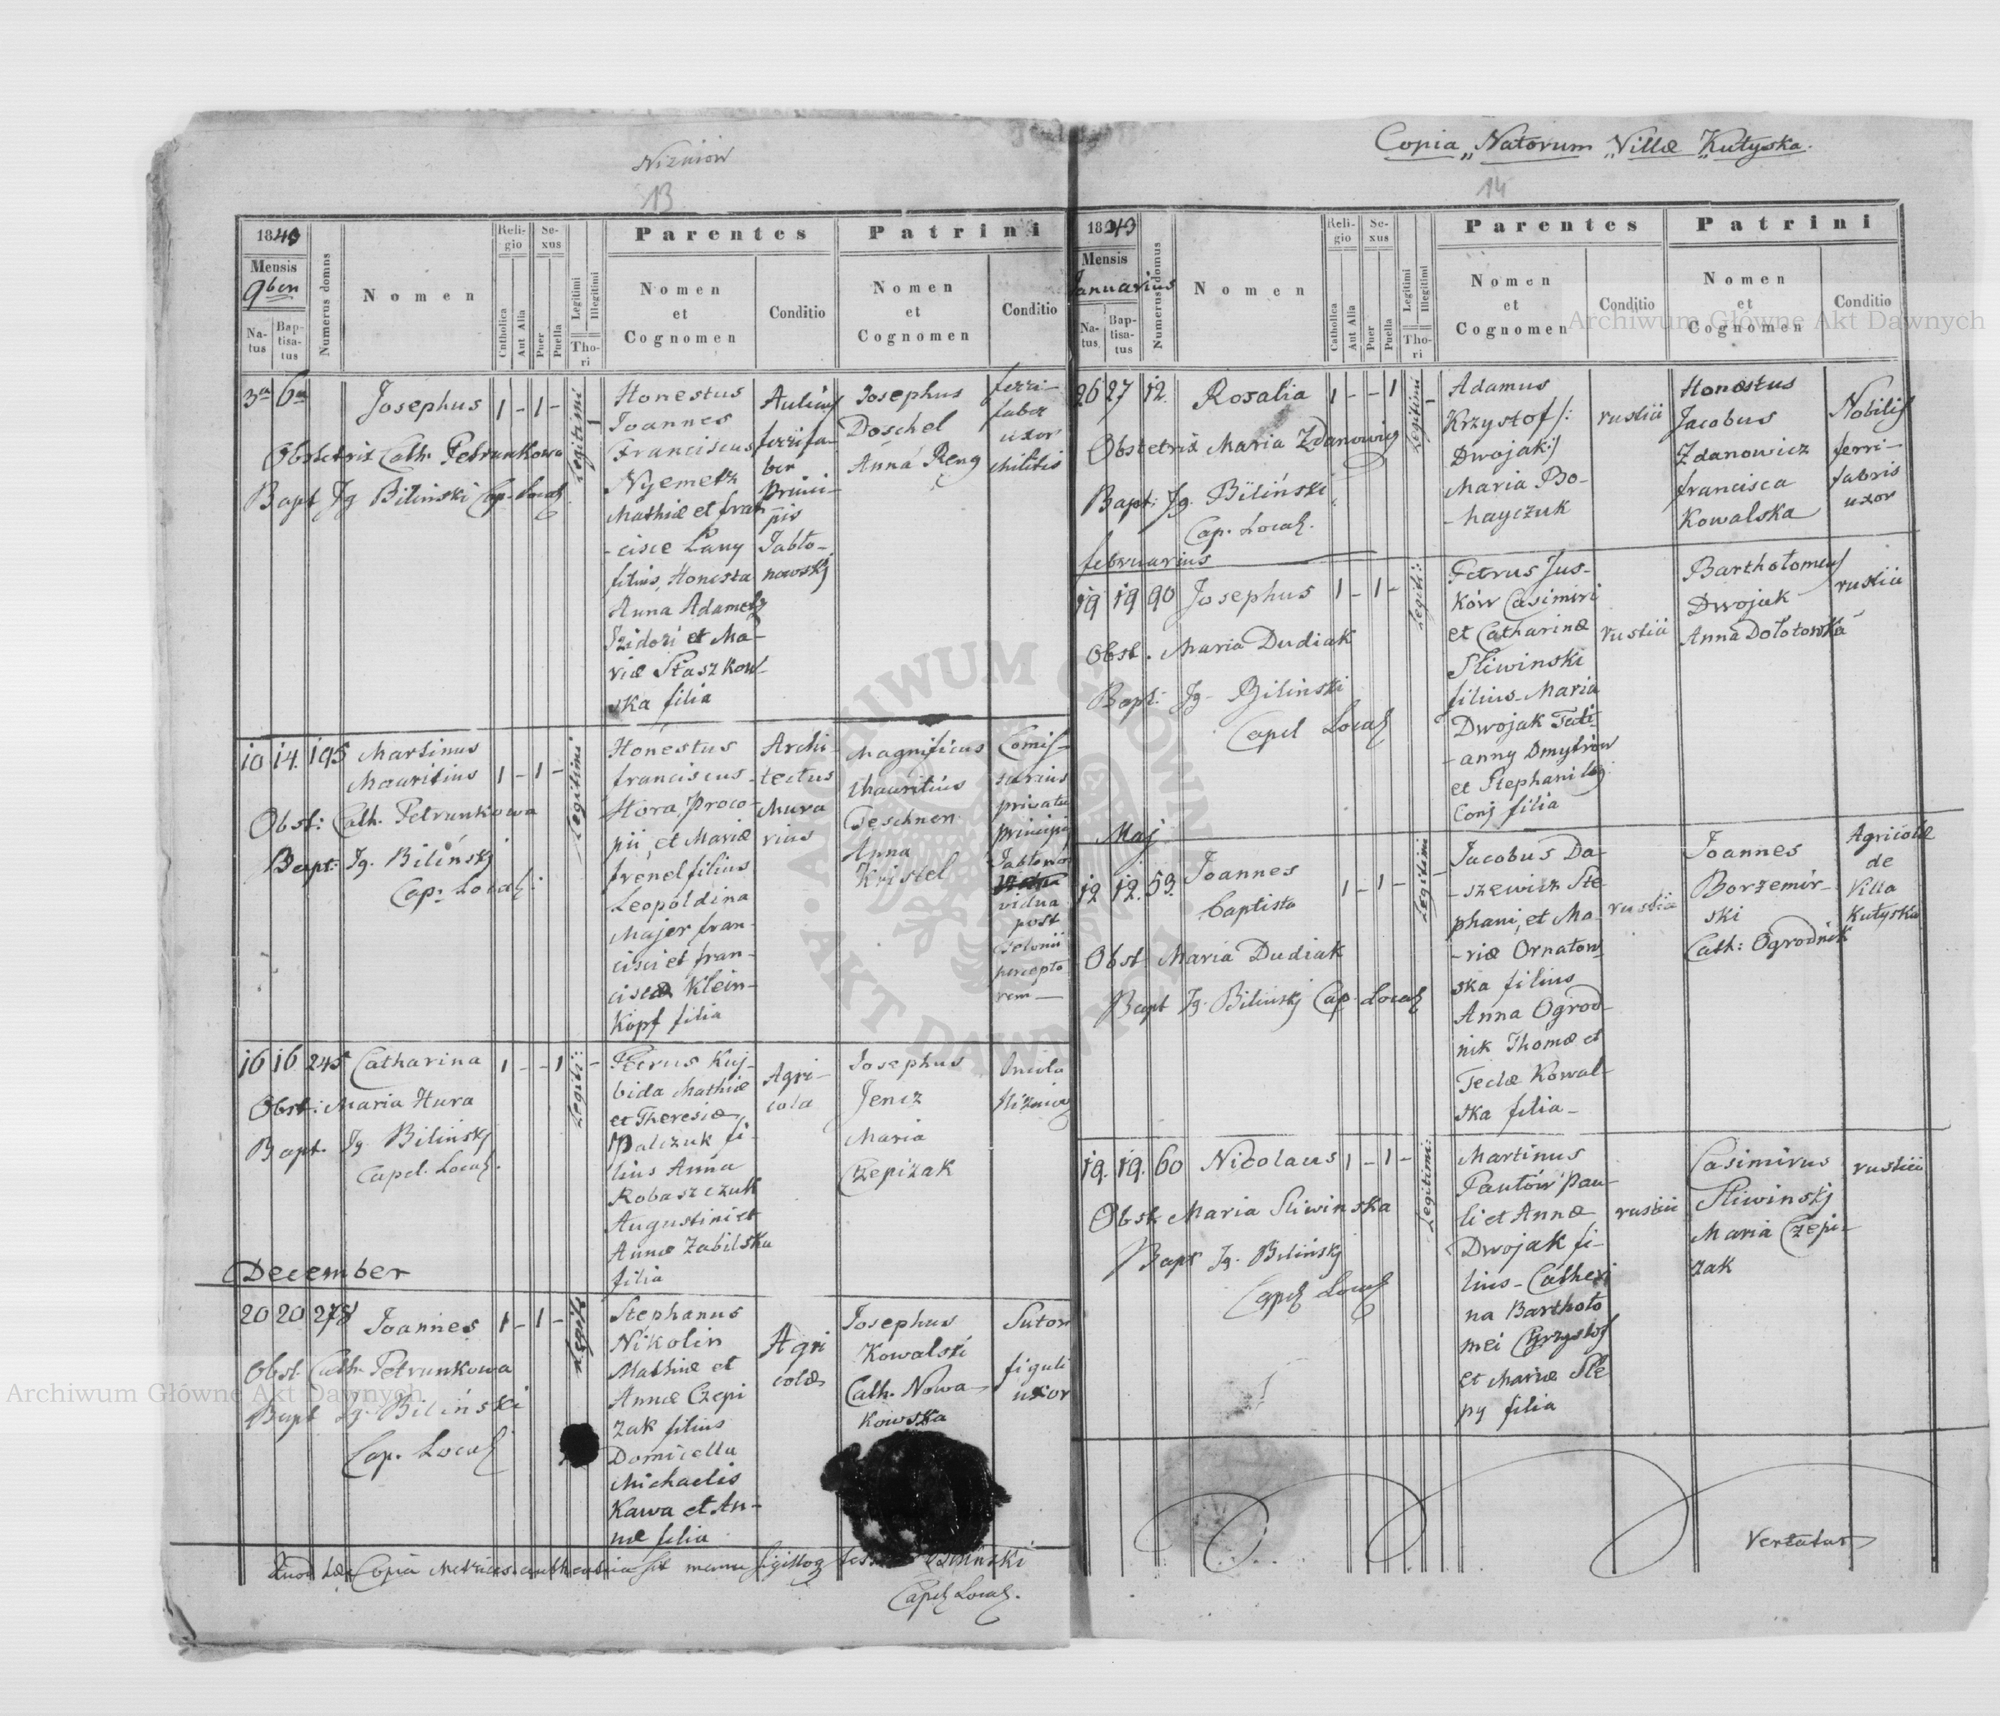 Nizniow
13
1843
Mensis
9ben
Natus
Baptisatus
Numerus domus
Nomen
Religio
Catholica
Aut Alia
Sexus
Puer
Puella
Legitimi
Illegitimi
Thori
Parentes
Nomen
et
Cognomen
Conditio
Patrini
Nomen
et
Cognomen
Conditio
3a 6a Josephus 1 - 1 -
Obstetrix Cath. Petrunkowa
Bapt Jg Bilinski Cap. Local
Legitimi
Honestus
Joannes
Franciscus
Nyemetz
Mathiæ et fran
-cisce Lany
filius, Honesta
Anna Adametz
Izidori et Ma-
riæ Staszkow-
ska filia
Aulicus
ferrifa-
ber
Princi-
pis
Jabło-
nowskj
Josephus
Doschel
Anna Reng
ferri-
faber
uxor
militis
10 14 195 Martinus
Mauritius 1 - 1 -
Obst: Cath. Petrunkowa
Bapt: Jg. Bilińskj
Cap: Local:
Legitimi
Honestus
franciscus
Hora, Proco-
pii, et Mariæ
frenel filius
Leopoldina
Majer fran-
cisci et fran-
ciscæ Klein-
Kopf filia
Archi-
tectus
Mura
rius
Magnificus
Mauritius
Geschnen
Anna
Kristel
Comis-
sarius
privatus
principis
Jablono
vidua
post
Telonii
percepto
rem
16 16 245 Catharina 1 - - 1
Obst: Maria Hura
Bapt. Jg. Bilińskj
Capel. Local.
Legiti:
Petrus Kuj-
bida Mathiæ
et Theresiæ
Palczuk fi-
lius Anna
Robaszczuk
Augustini et
Annæ Zabilska
filia
Agri-
cola
Josephus
Jencz
Maria
Czepizak
December
20 20 278 Joannes 1 - 1 -
Obst. Cath. Petrunkowa
Bapt Jg. Biliński
Cap. Local
Legiti
Stephanus
Nikolin
Mathiæ et
Annæ Czepi
zak filius
Domicella
Michaelis
Kawa et An-
næ filia
Agri
colæ
Josephus
Kowalski
Cath. Nowa
kowska
Sutor
figuli
uxor
Quod hæc Copia Metrices authentica sit manu sigilloq Biliński
Capel Local.
Copia „Natorum „Villæ „Kutyska.
14
1843
Mensis
Januarius
Natus
Baptisatus
Numerus domus
Nomen
Religio
Catholica
Aut Alia
Sexus
Puer
Puella
Legitimi
Illegitimi
Thori
Parentes
Nomen
et
Cognomen
Conditio
Patrini
Nomen
et
Cognomen
Conditio
26 27 12. Rosalia 1 - - 1
Obstetrix Maria Zdanowicz
Bapt: Jg. Biliński
Cap. Local.
Legitimi
Adamus
Krzystof /:
Dwojak:/
Maria Bo-
-hayczuk
rustici
Honestus
Jacobus
Zdanowicz
francisca
Kowalska
Nobilis
ferri-
fabris
uxor
februarius
19 19 90 Josephus 1 - 1 -
Obst. Maria Dudiak
Bapt: Jg. Bilinski
Capel Local
Legiti:
Petrus Jus-
ków Casimiri
et Catharinæ
Sliwinski
filius. Maria
Dwojak Tati-
-anny Dmytrów
et Stephani leg.
Conj filia
rustici
Bartholomeus
Dwojak
Anna Dołotowska
rustici
Maj
12 12. 53. Joannes
Baptista 1 - 1 -
Obst Maria Dudiak
Bapt Jg. Bilińskj Cap. Local
Legitimi
Jacobus Da-
-szewicz Ste
phani, et Ma-
-riæ Ornatow
ska filius
Anna Ogrod-
nik Thomæ et
Teclæ Kowal-
ska filia-
rustici
Joannes
Borzemir-
ski
Cath: Ogrodnik
Agricolæ
de
Villa
Kutyska
19. 19. 60 Nicolaus 1 - 1 -
Obst. Maria Sliwinska
Bapt Jg. Bilińskj
Capel Local
Legitimi:
Martinus
Pautów Pau-
li et Annæ
Dwojak fi-
lius - Catheri
na Bartholo
mei Chrzystof
et Mariæ Sle
py filia
rustici
Casimirus
Sliwinskj
Maria Czepi-
zak
rustici
Vertatur
Archiwum Główne Akt Dawnych
Archiwum Główne Akt Dawnych
ARCHIWUM GŁÓWNE AKT DAWNYCH